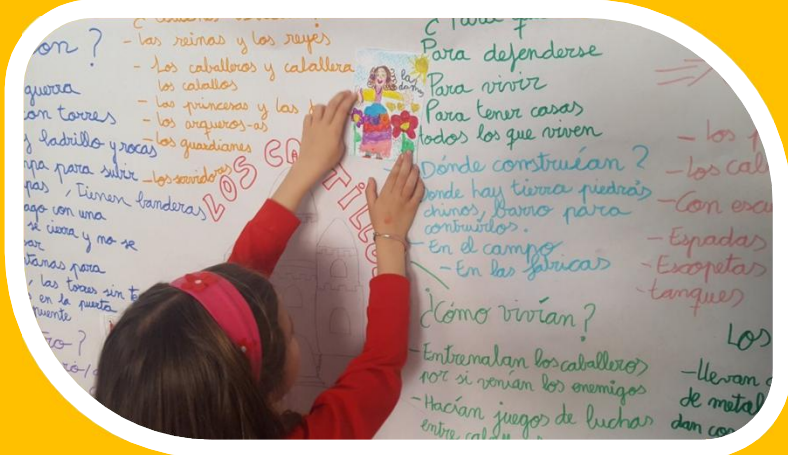 on?
guerra
con torres
y ladrillo y rocas
para subir
pas, Tienen banderas
ago con una
se cierra y no se
ar
tanas para
las torres sin
en la puerta
puente
ro?
- las reinas y los reyes
- Los caballeros y caballera
los caballos
- las princesas y las
- los arqueros-as
- los guardianes
- los servidores
LOS CASTILLOS
las
damas
Para defenderse
Para vivir
Para tener casas
todos los que viven
Dónde construéan?
onde hay tierra piedras
chinos, barro para
contruirlos.
- En el campo
- En las fabricas
¿Cómo vivían?
- Entrenaban los caballeros
por si venían los enemigos
- Hacían juegos de luchas
entre
- los
- Los cab
- Con escu
- Espadas
- Escopetas
- tanques
Los
- llevan
de metal
dan con